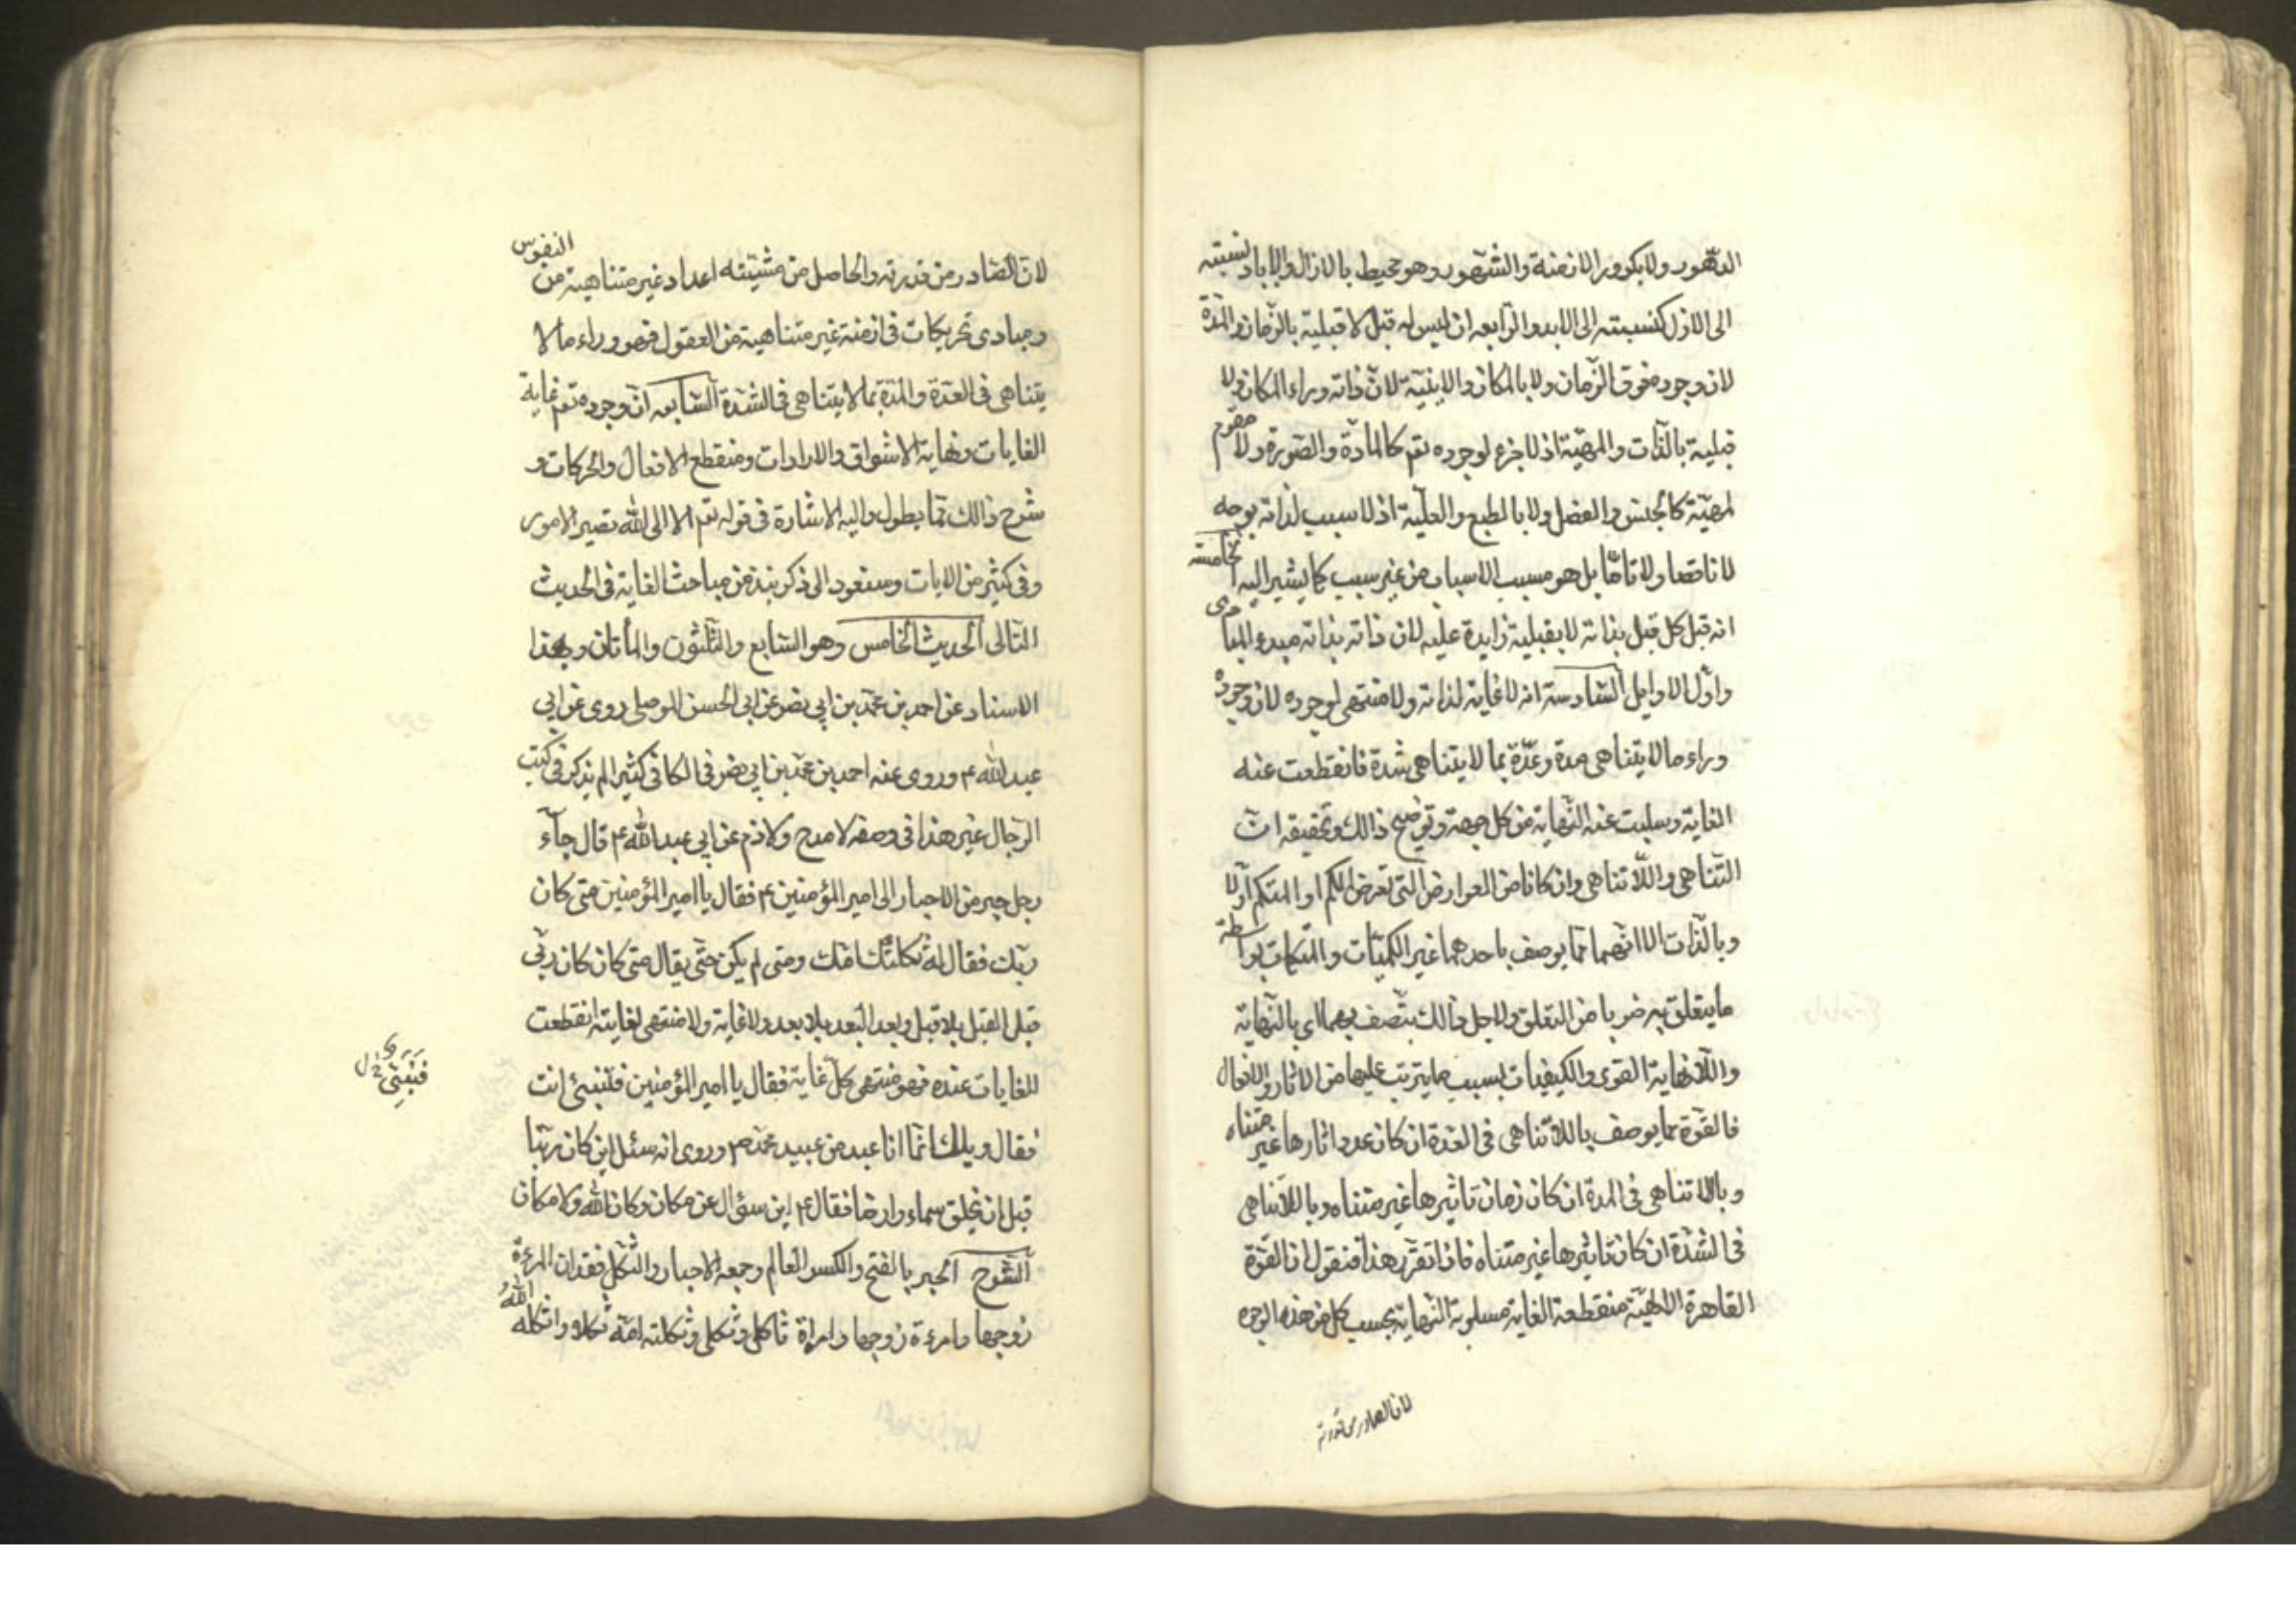 الدهور ولا بكرور الازمنة والشهور وهو محيط بالازال والاباد نسبته
الى الازل كنسبته الى الابد والرابعه ان ليس له قبل لا قبلية بالزمان والمدة
لان وجوده فوق الزمان ولا بالمكان والاينية لان ذاته وراء المكان ولا
قبلية بالذات والمهيّة اذ لا جزء لوجوده تعم كالمادة والصورة ولا مقوم
لمهيّة كالجنس والفصل ولا بالطبع والعلية اذ لا سبب لذاته بوجه
لا ناقصا ولا تامّا بل هو مسبب الاسباب من غير سبب كما يشير اليه الخامسه
انه قبل كل قبل بذاته لا بقبلية زايدة عليه لان ذاته بذاته مبدء المبادى
واول الاوايل السادسة انه لا غاية لذاته ولا منتهى لوجوده لان وجوده
وراء ما لا يتناهى مدة وعدّة بما لا يتناهى شدة فانقطعت عنه
الغاية وسلبت عنه النهاية من كل جهة وتوضيح ذالك وتحقيقه ان
التناهى واللّا تناهى وان كانا من العوارض التى تعرض الكم او المتكم اولا
وبالذات الا انهما مما يوصف باحدهما غير الكميّات والمتكمات بواسطة
ما يتعلق به ضربا من التعلق ولاجل ذالك يتصف بهما اى بالنهاية
واللّا نهاية القوى والكيفيات بسبب ما يترتب عليها من الاثار والافعال
فالقوة مما يوصف باللّا تناهى فى العدة ان كان عدد اثارها غير متناه
وباللا تناهى فى المدة ان كان زمان تاثيرها غير متناه وباللّا تناهى
فى الشدة ان كان تاثيرها غير متناه فاذا تقرر هذا فنقول ان القوة
القاهرة الالهيّة منقطعة الغاية مسلوبة النهاية بحسب كل من هذه الوجوه
لان الصادر من قدرته
لان الصادر من قدرته والحاصل من مشيّته اعداد غير متناهية من النفوس
ومبادى تحريكات فى ازمنة غير متناهية من العقول فهو وراء ما لا
يتناهى فى العدة والمدة بما لا يتناهى فى الشدة السّابعه ان وجوده تعم غاية
الغايات ونهاية الاشواق والارادات ومنقطع الافعال والحركات و
شرح ذالك مما يطول واليه الاشارة فى قوله تعم الا الى الله تصير الامور
وفى كثير من الايات وسنعود الى ذكر نبذ من مباحث الغاية فى الحديث
التالى الحديث الخامس وهو السّابع والثلثون والمأتان وبهذا
الاسناد عن احمد بن محمّد بن ابي نصر عن ابى الحسن الموصلى روى عن ابي
عبد الله ع وروى عنه احمد بن محمّد بن ابي نصر فى الكافى كثيرا لم يذكر فى كتب
الرجال غير هذا فى وصفه لا مدح ولا ذم عن ابي عبد الله ع قال جآء
رجل حبر من الاحبار الى امير المؤمنين ع فقال يا امير المؤمنين متى كان
ربّك فقال له ثكلتك امّك ومتى لم يكن حتّى يقال متى كان كان ربّي
قبل القبل بلا قبل وبعد البعد بلا بعد ولا غاية ولا منتهى لغايته انقطعت
الغايات عنده فهو منتهى كل غاية فقال يا امير المؤمنين فلنبىّ انت
فقال ويلك انّما انا عبد من عبيد محمّد ص وروى انه سئل اين كان ربّنا
قبل ان يخلق سماء وارضا فقال ع اين سؤال عن مكان وكان الله ولا مكان
الشرح الحبر بالفتح والكسر العالم وجمعه الاحبار والثكل فقدان المرءة
زوجها وامرءة زوجها وامراة ثاكل وثكلى وثكلته امّه ثكلا واثكله الله
فَنَبِىّ